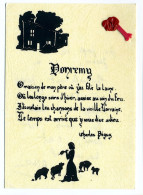 Domremy
O maison de mon père où j'ai filé la laine,
Où les longs soirs d'hiver, assise au coin du feu,
J'écoutais les chansons de la vieille Lorraine,
Le temps est arrivé que je vous dise adieu.
Charles Péguy